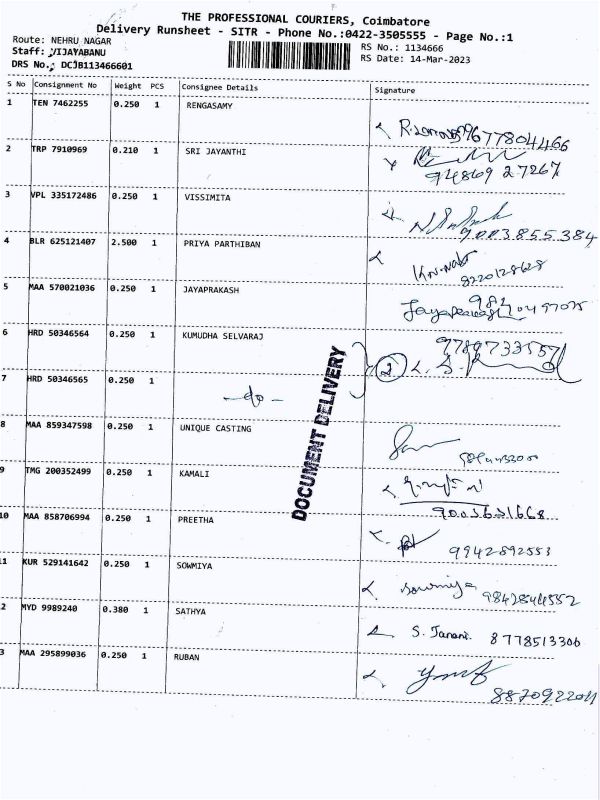 THE PROFESSIONAL COURIERS, Coimbatore
Delivery Runsheet - SITR - Phone No.:0422-3505555 - Page No.:1
Route: NEHRU NAGAR
RS No.: 1134666
Staff: VIJAYABANU
RS Date: 14-Mar-2023
DRS No.: DCJB113466601
S No Consignment No Weight PCS Consignee Details Signature
1 TEN 7462255 0.250 1 RENGASAMY
9677804466
2 TRP 7910969 0.210 1 SRI JAYANTHI
94869 27267
3 VPL 335172486 0.250 1 VISSIMITA
9003855384
4 BLR 625121407 2.500 1 PRIYA PARTHIBAN
8220128628
5 MAA 570021036 0.250 1 JAYAPRAKASH
6 HRD 50346564 0.250 1 KUMUDHA SELVARAJ
9789733557
2
7 HRD 50346565 0.250 1 -do-
DOCUMENT DELIVERY
8 MAA 859347598 0.250 1 UNIQUE CASTING
9 TMG 200352499 0.250 1 KAMALI
9003631668
10 MAA 858706994 0.250 1 PREETHA
9942892553
11 KUR 529141642 0.250 1 SOWMIYA
Sowmiya 9842844552
2 MYD 9989240 0.380 1 SATHYA
S. Janani 8778513306
3 MAA 295899036 0.250 1 RUBAN
8870922011